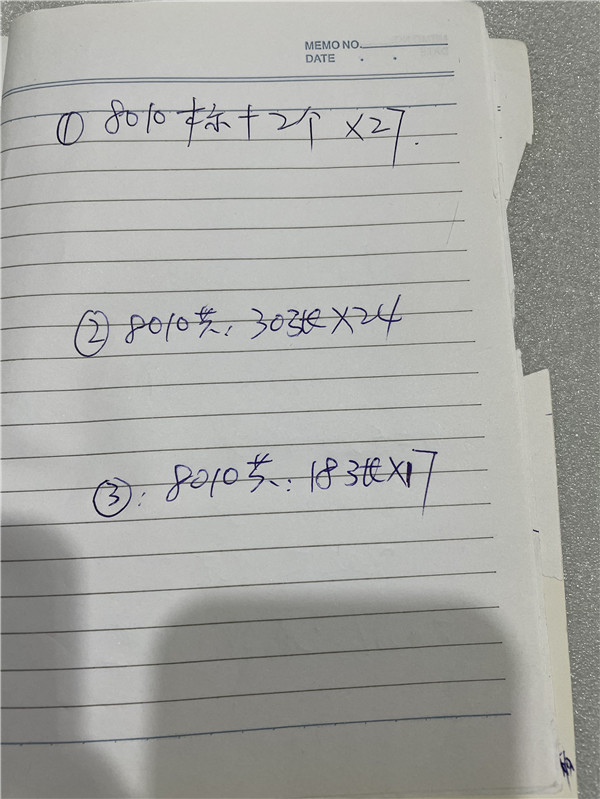 MEMO NO.
DATE
① 8010标+2个 ×27.
② 8010芸: 303张×24
③: 8010芸: 183张×17